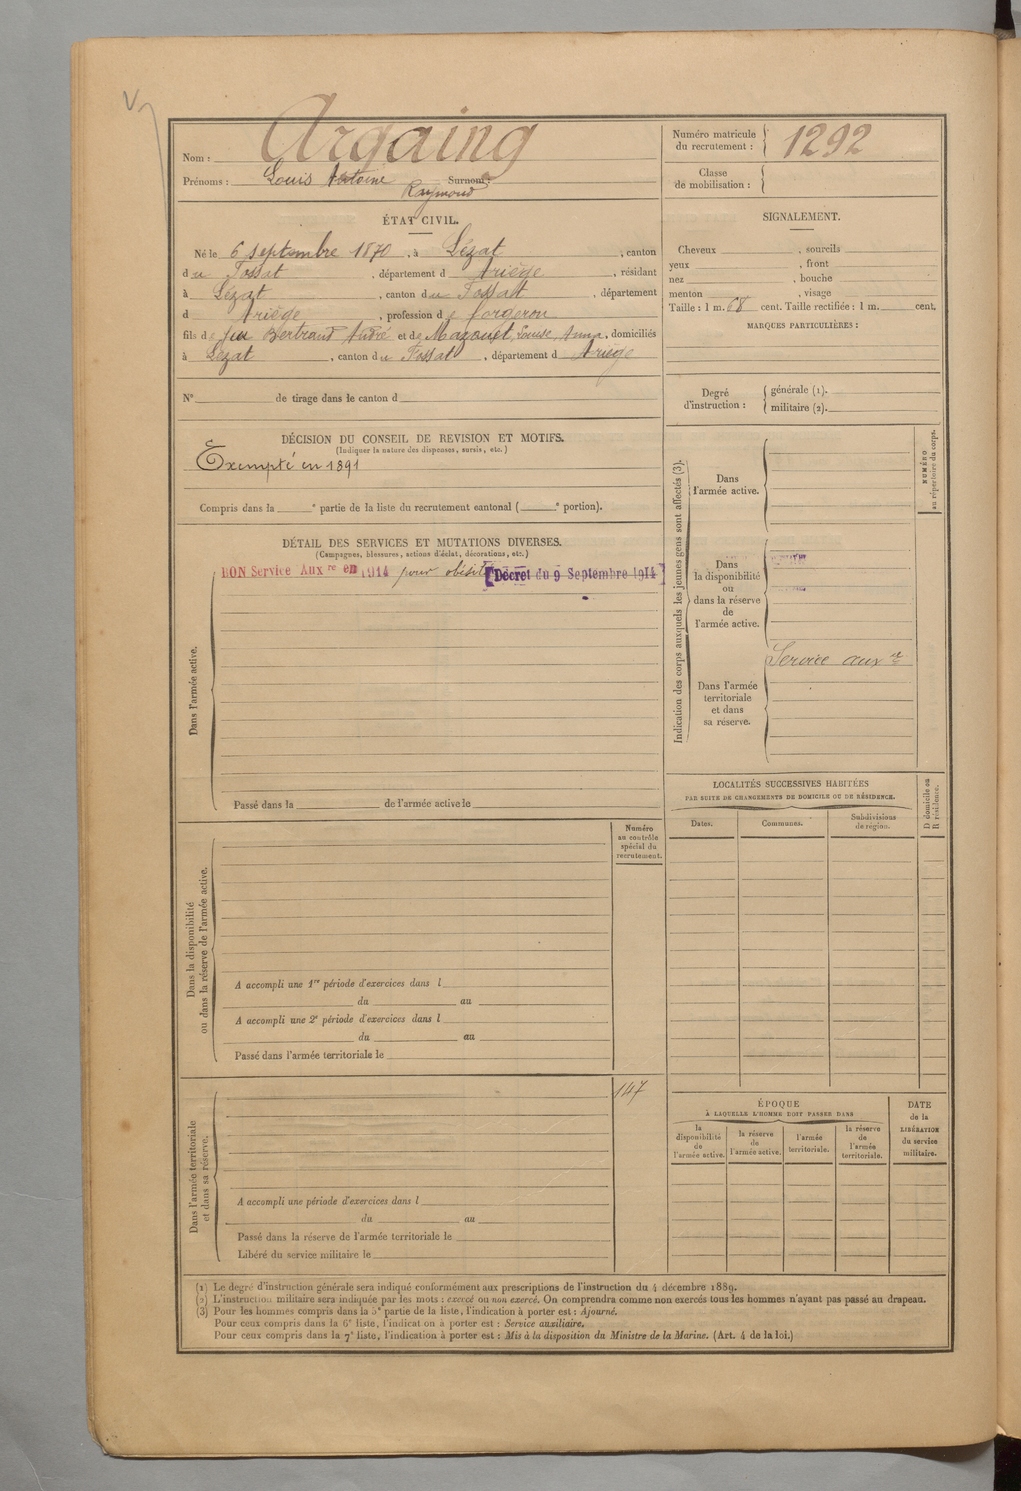 Nom : Argaing
Prénoms : Louis Antoine Raymond Surnom :
Numéro matricule du recrutement : 1292
Classe de mobilisation :
ÉTAT CIVIL.
Né le 6 septembre 1870, à Lézat, canton
du Fossat, département d Ariège, résidant
à Lézat, canton du Fossat, département
d Ariège, profession de forgeron
fils de feu Bertrand André et de Mazouet, Louise, Anna, domiciliés
à Lézat, canton du Fossat, département d Ariège
SIGNALEMENT.
Cheveux , sourcils
yeux , front
nez , bouche
menton , visage
Taille : 1 m. 68 cent. Taille rectifiée : 1 m. cent.
MARQUES PARTICULIÈRES :
N° de tirage dans le canton d
Degré d'instruction :
générale (1).
militaire (2).
DÉCISION DU CONSEIL DE REVISION ET MOTIFS.
(Indiquer la nature des dispenses, sursis, etc.)
Exempté en 1891
Compris dans la e partie de la liste du recrutement cantonal ( e portion).
DÉTAIL DES SERVICES ET MUTATIONS DIVERSES.
(Campagnes, blessures, actions d'éclat, décorations, etc.)
BON Service Auxre en 1914 pour obésité [Décret du 9 Septembre 1914]
Dans l'armée active.
Passé dans la de l'armée active le
Indication des corps auxquels les jeunes gens sont affectés (3).
Dans
l'armée active.
Dans
la disponibilité
ou
dans la réserve
de
l'armée active.
Service auxre
Dans l'armée
territoriale
et dans
sa réserve.
NUMÉRO
au répertoire du corps.
LOCALITÉS SUCCESSIVES HABITÉES
PAR SUITE DE CHANGEMENTS DE DOMICILE OU DE RÉSIDENCE.
Dates.
Communes.
Subdivisions
de région.
D domicile ou
R résidence.
Numéro
au contrôle
spécial du
recrutement.
Dans la disponibilité
ou dans la réserve de l'armée active.
A accompli une 1re période d'exercices dans l
du au
A accompli une 2e période d'exercices dans l
du au
Passé dans l'armée territoriale le
147
Dans l'armée territoriale
et dans sa réserve.
A accompli une période d'exercices dans l
du au
Passé dans la réserve de l'armée territoriale le
Libéré du service militaire le
ÉPOQUE
À LAQUELLE L'HOMME DOIT PASSER DANS
la
disponibilité
de
l'armée active.
la réserve
de
l'armée active.
l'armée
territoriale.
la réserve
de
l'armée
territoriale.
DATE
de la
LIBÉRATION
du service
militaire.
(1) Le degré d'instruction générale sera indiqué conformément aux prescriptions de l'instruction du 4 décembre 1889.
(2) L'instruction militaire sera indiquée par les mots : exercé ou non exercé. On comprendra comme non exercés tous les hommes n'ayant pas passé au drapeau.
(3) Pour les hommes compris dans la 5e partie de la liste, l'indication à porter est : Ajourné.
Pour ceux compris dans la 6e liste, l'indication à porter est : Service auxiliaire.
Pour ceux compris dans la 7e liste, l'indication à porter est : Mis à la disposition du Ministre de la Marine. (Art. 4 de la loi.)